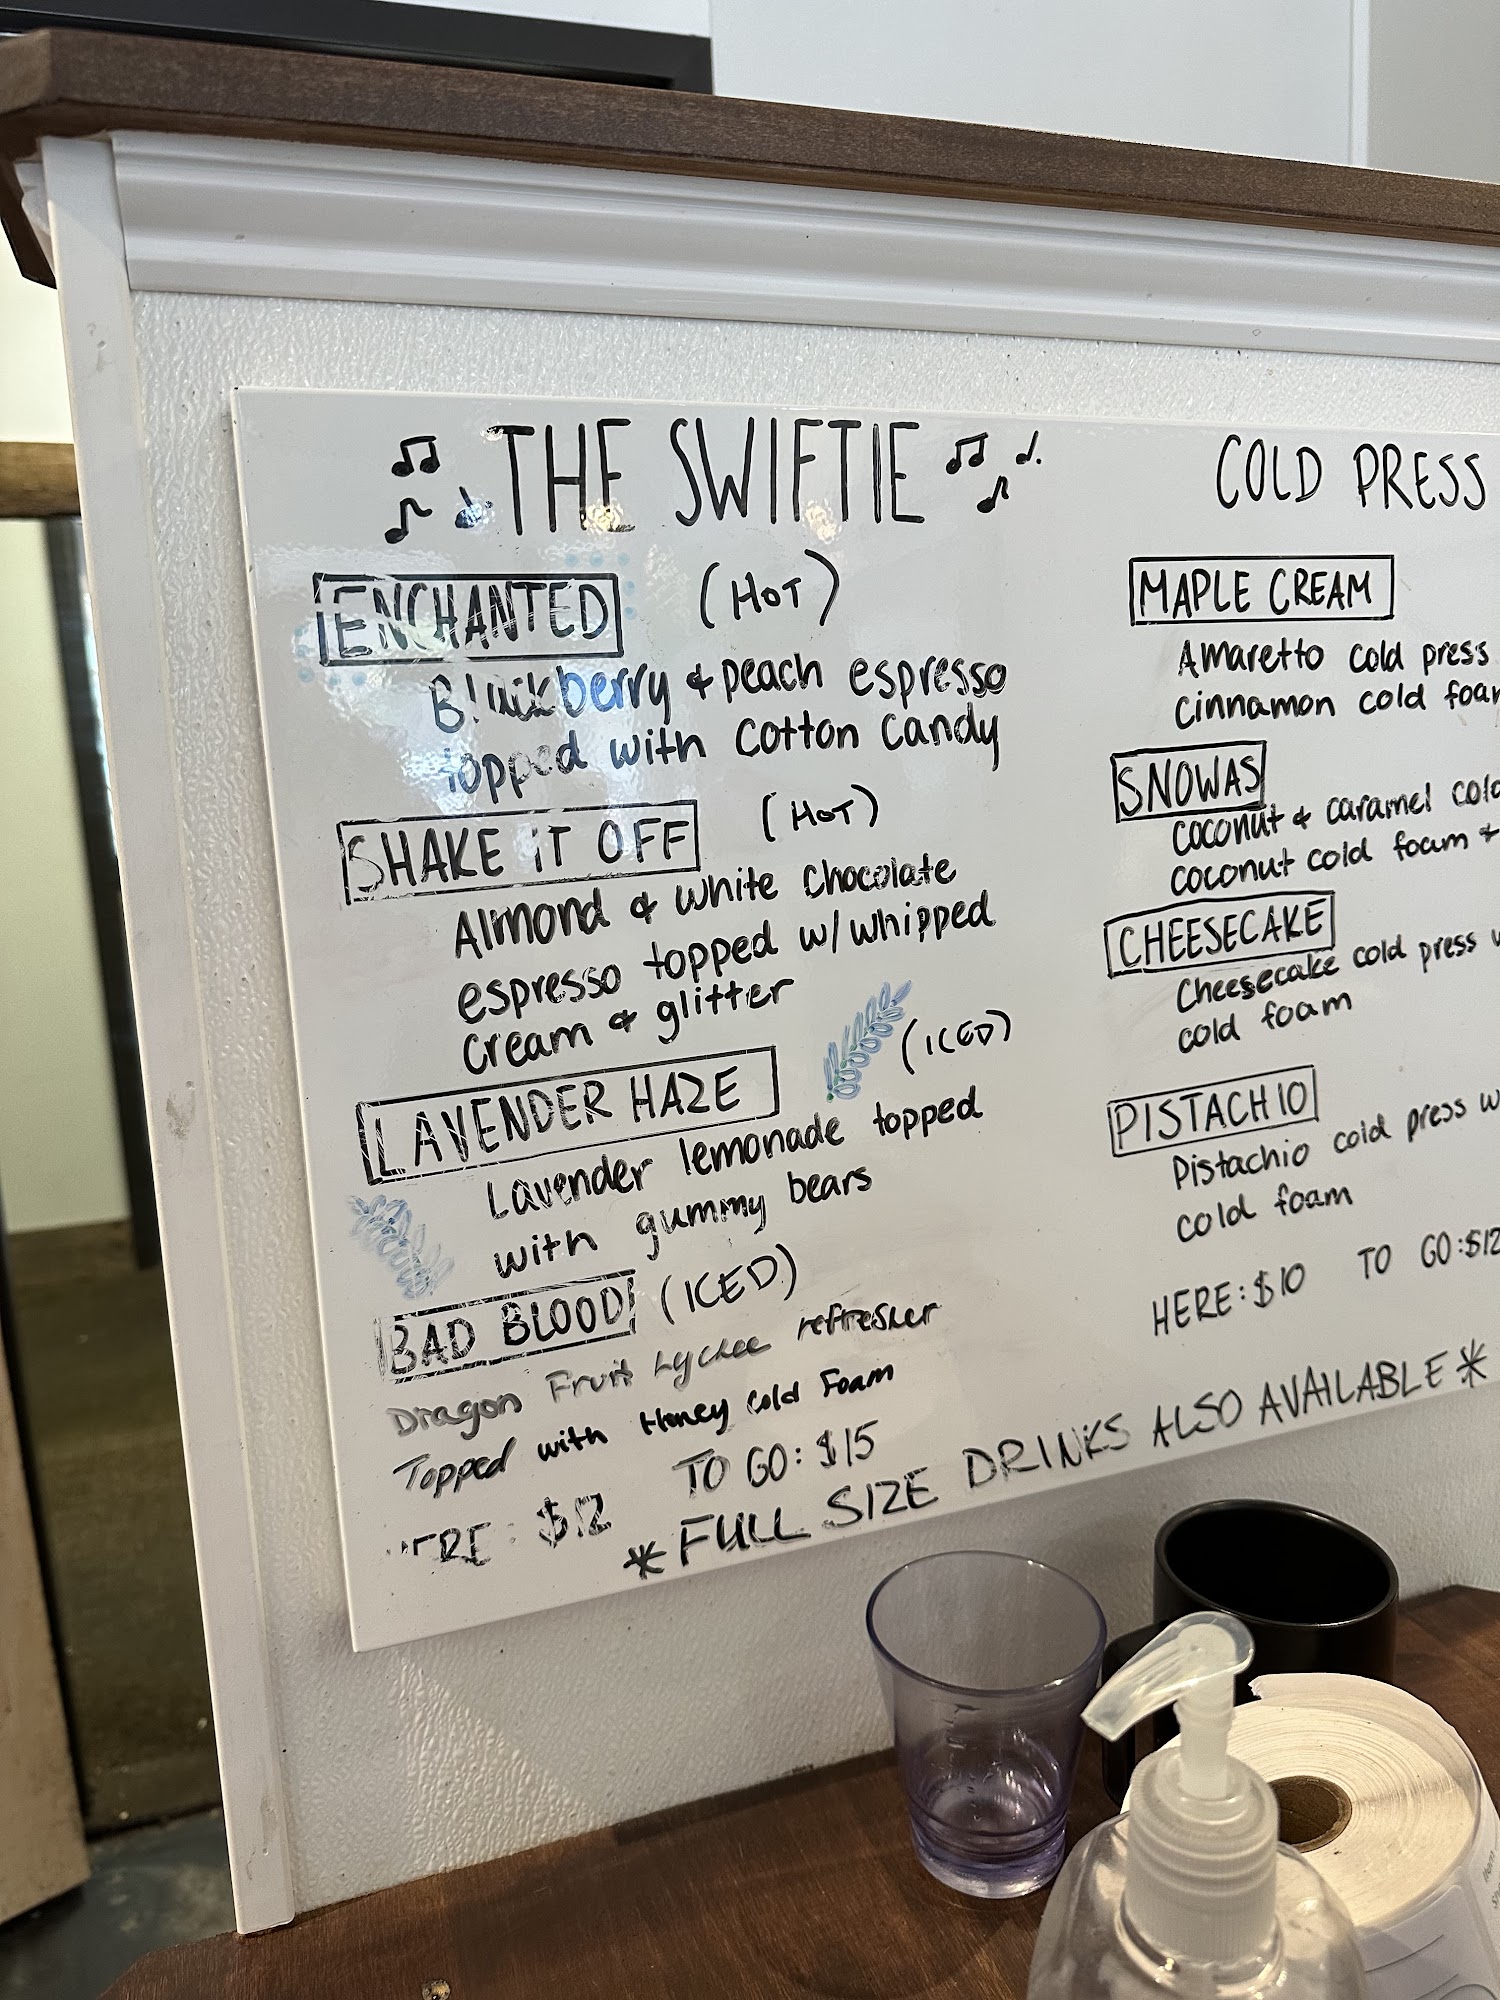 THE SWIFTIE
ENCHANTED (HOT)
Blackberry & peach espresso
topped with cotton candy
SHAKE IT OFF (HOT)
Almond & white chocolate
espresso topped w/ whipped
cream & glitter
LAVENDER HAZE (ICED)
Lavender lemonade topped
with gummy bears
BAD BLOOD (ICED)
Dragon Fruit Lychee refresher
Topped with Honey Cold Foam
HERE: $12 TO GO: $15
COLD PRESS
MAPLE CREAM
Amaretto cold press
cinnamon cold foam
SNOWAS
coconut & caramel cold
coconut cold foam +
CHEESECAKE
Cheesecake cold press w
cold foam
PISTACHIO
Pistachio cold press w
cold foam
HERE: $10 TO GO: $12
*FULL SIZE DRINKS ALSO AVAILABLE*